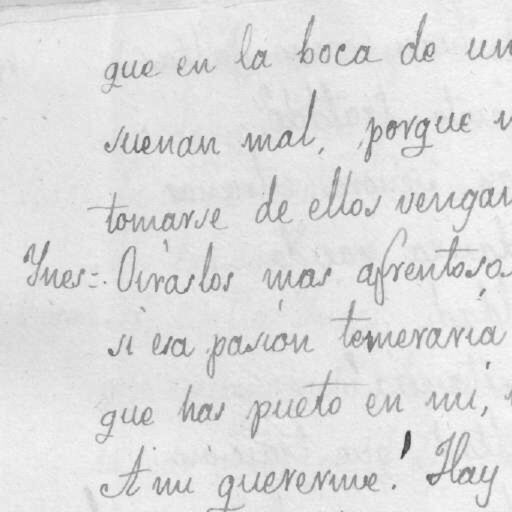 que en la boca de un
suenan mal, porque
tomarse de ellos vengan
Ynes=. Oiraslos mas afrentosos
si esa pasión temeraria
que has pueto en mi,
A mi quererme! Hay